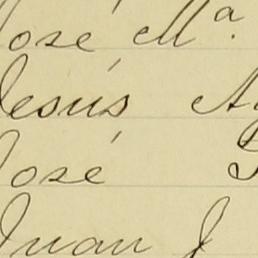 José Mª.
Jesús A
José
Juan J